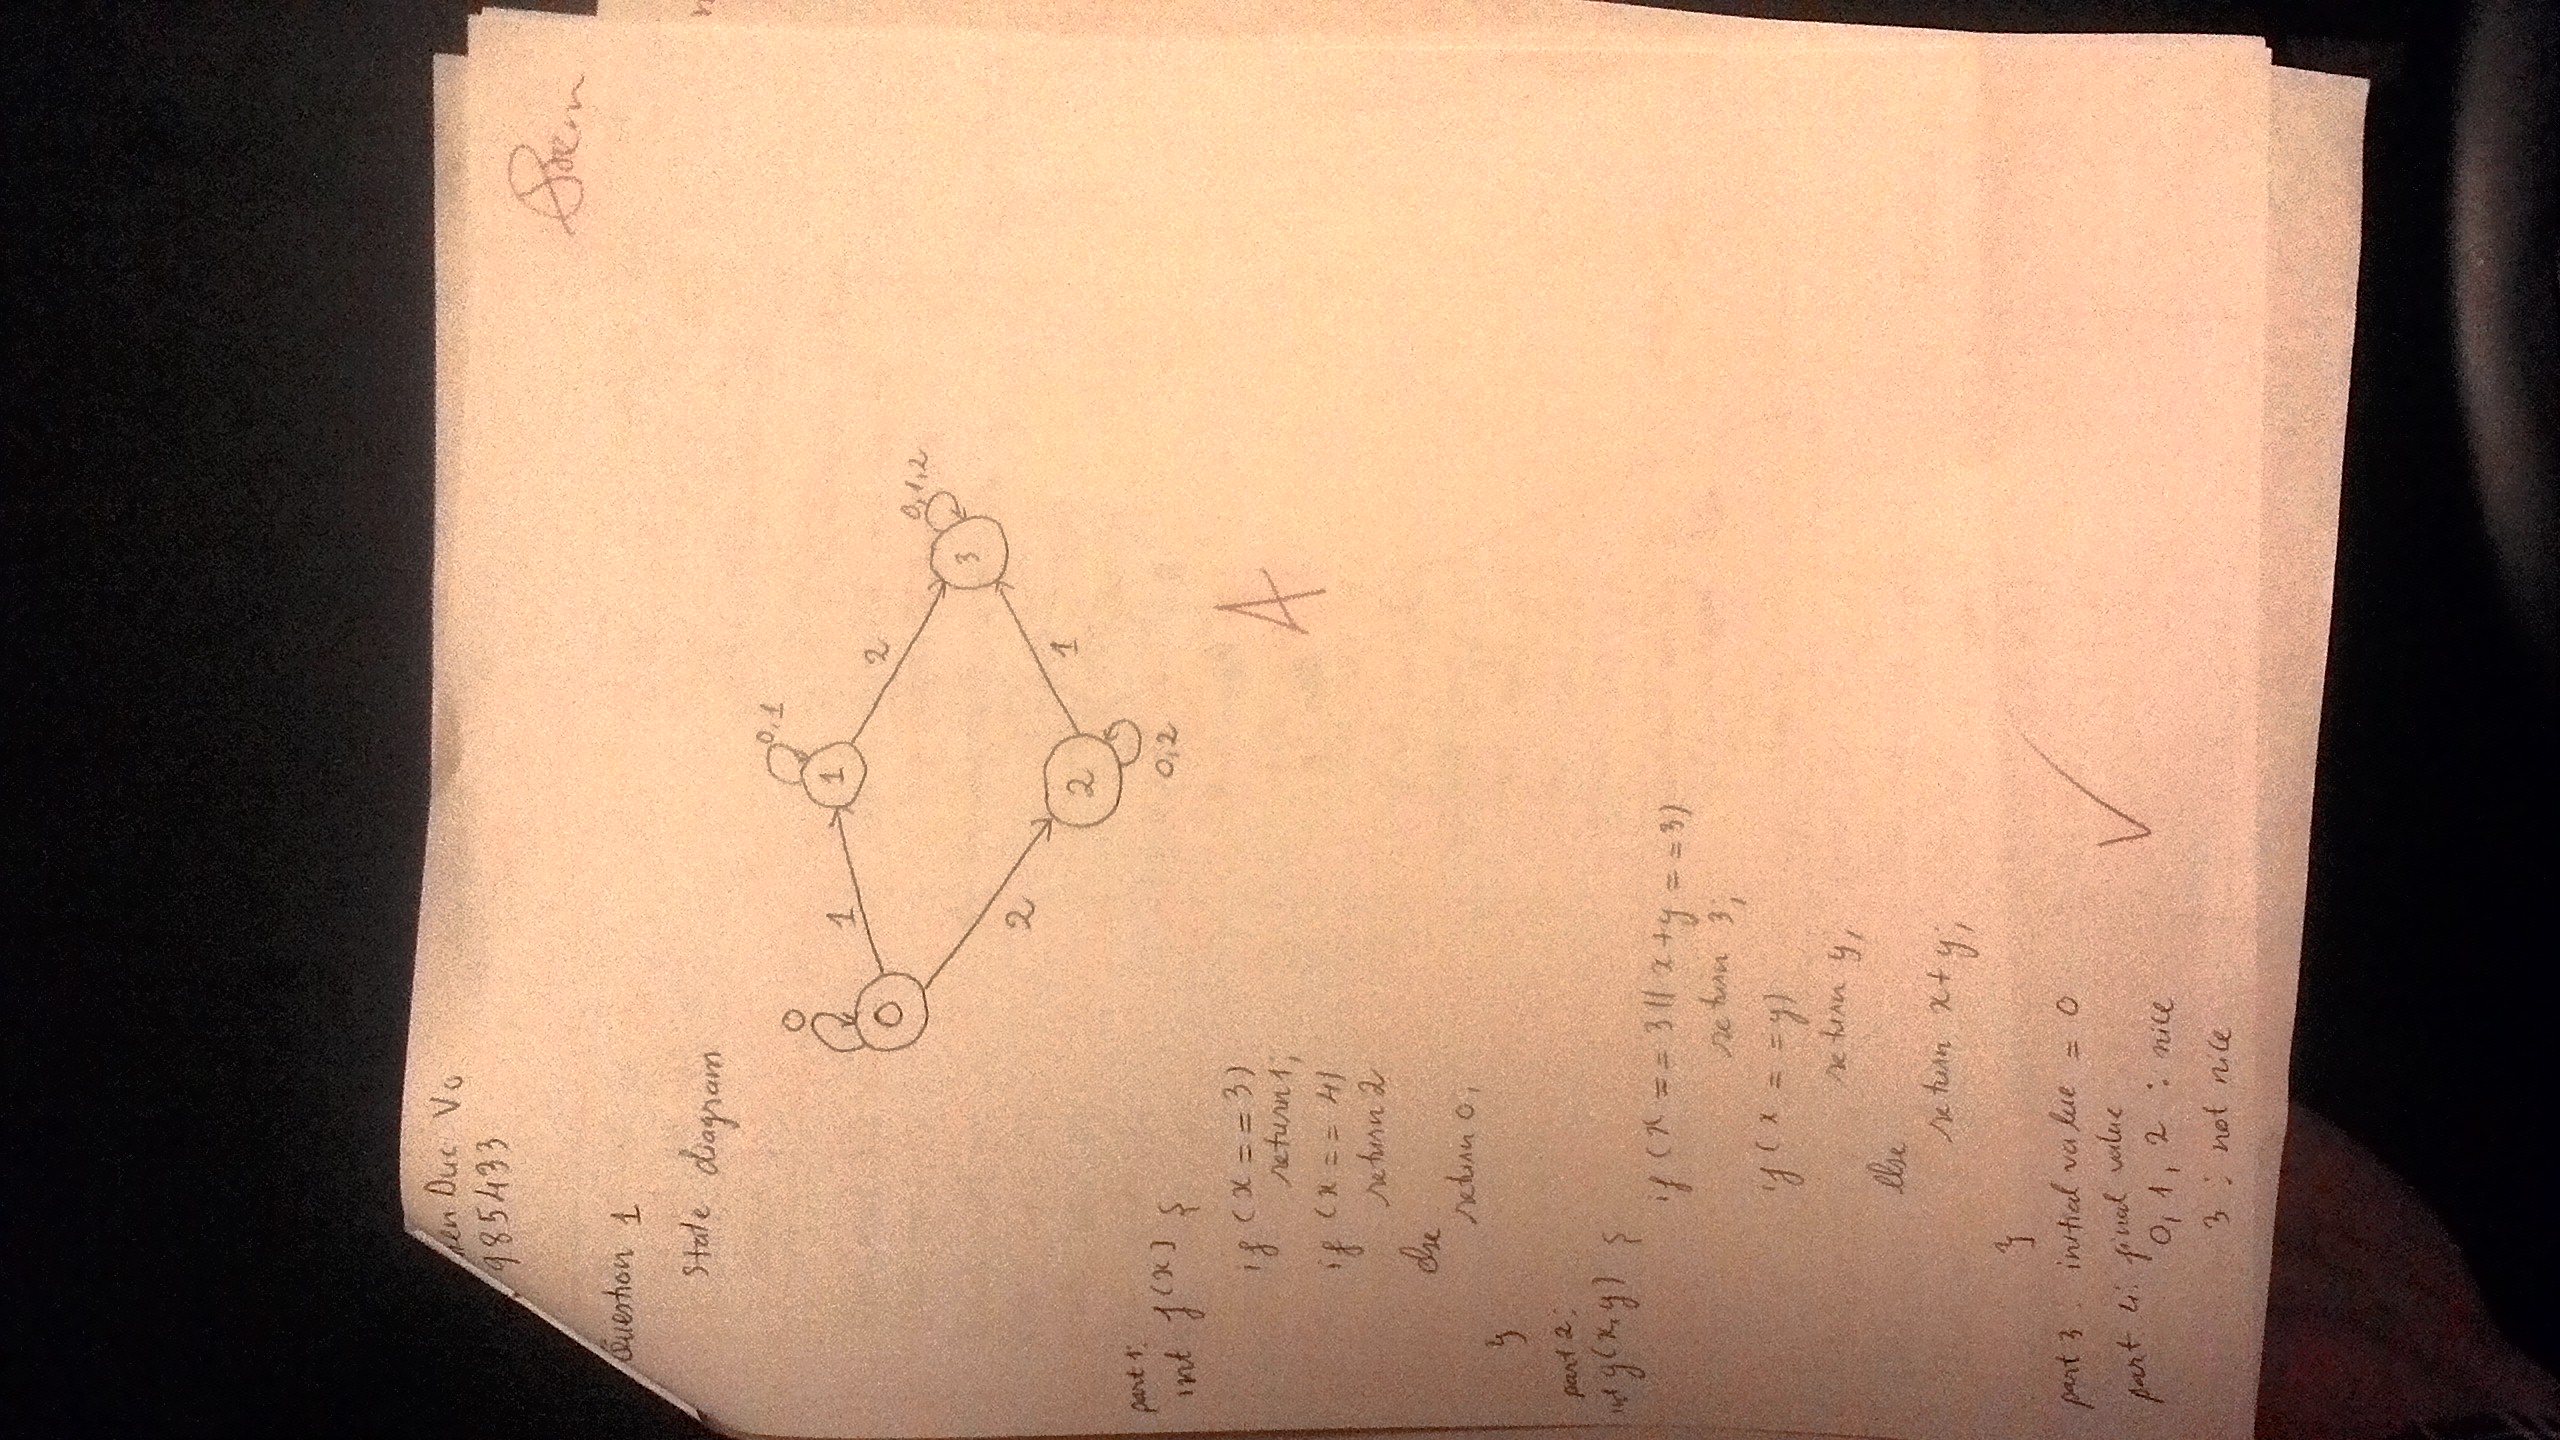 Duc Vo
985433
Question 1
State diagram
0
0,1
1
1
0
2
0,1,2
3
2
2
1
0,2
part 1:
int f(x) {
if (x == 3)
return 1;
if (x == 4)
return 2
else
return 0;
}
A
part 2:
int g(x,y) {
if (x == 3 || x+y == 3)
return 3;
if (x == y)
return y;
else
return x+y;
}
part 3: initial value = 0
part 4: final value
0, 1, 2 : nice
3 : not nice